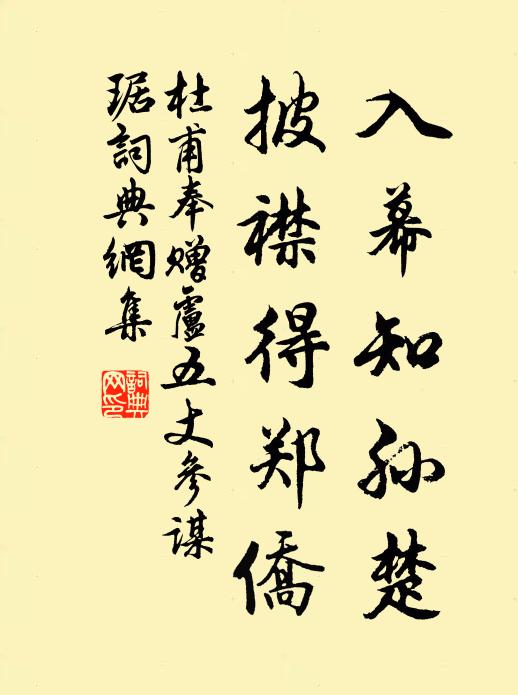 入幕知孙楚
披襟得郑僑
杜甫奉赠盧五丈參謀
琚詞典網集
詞典网印